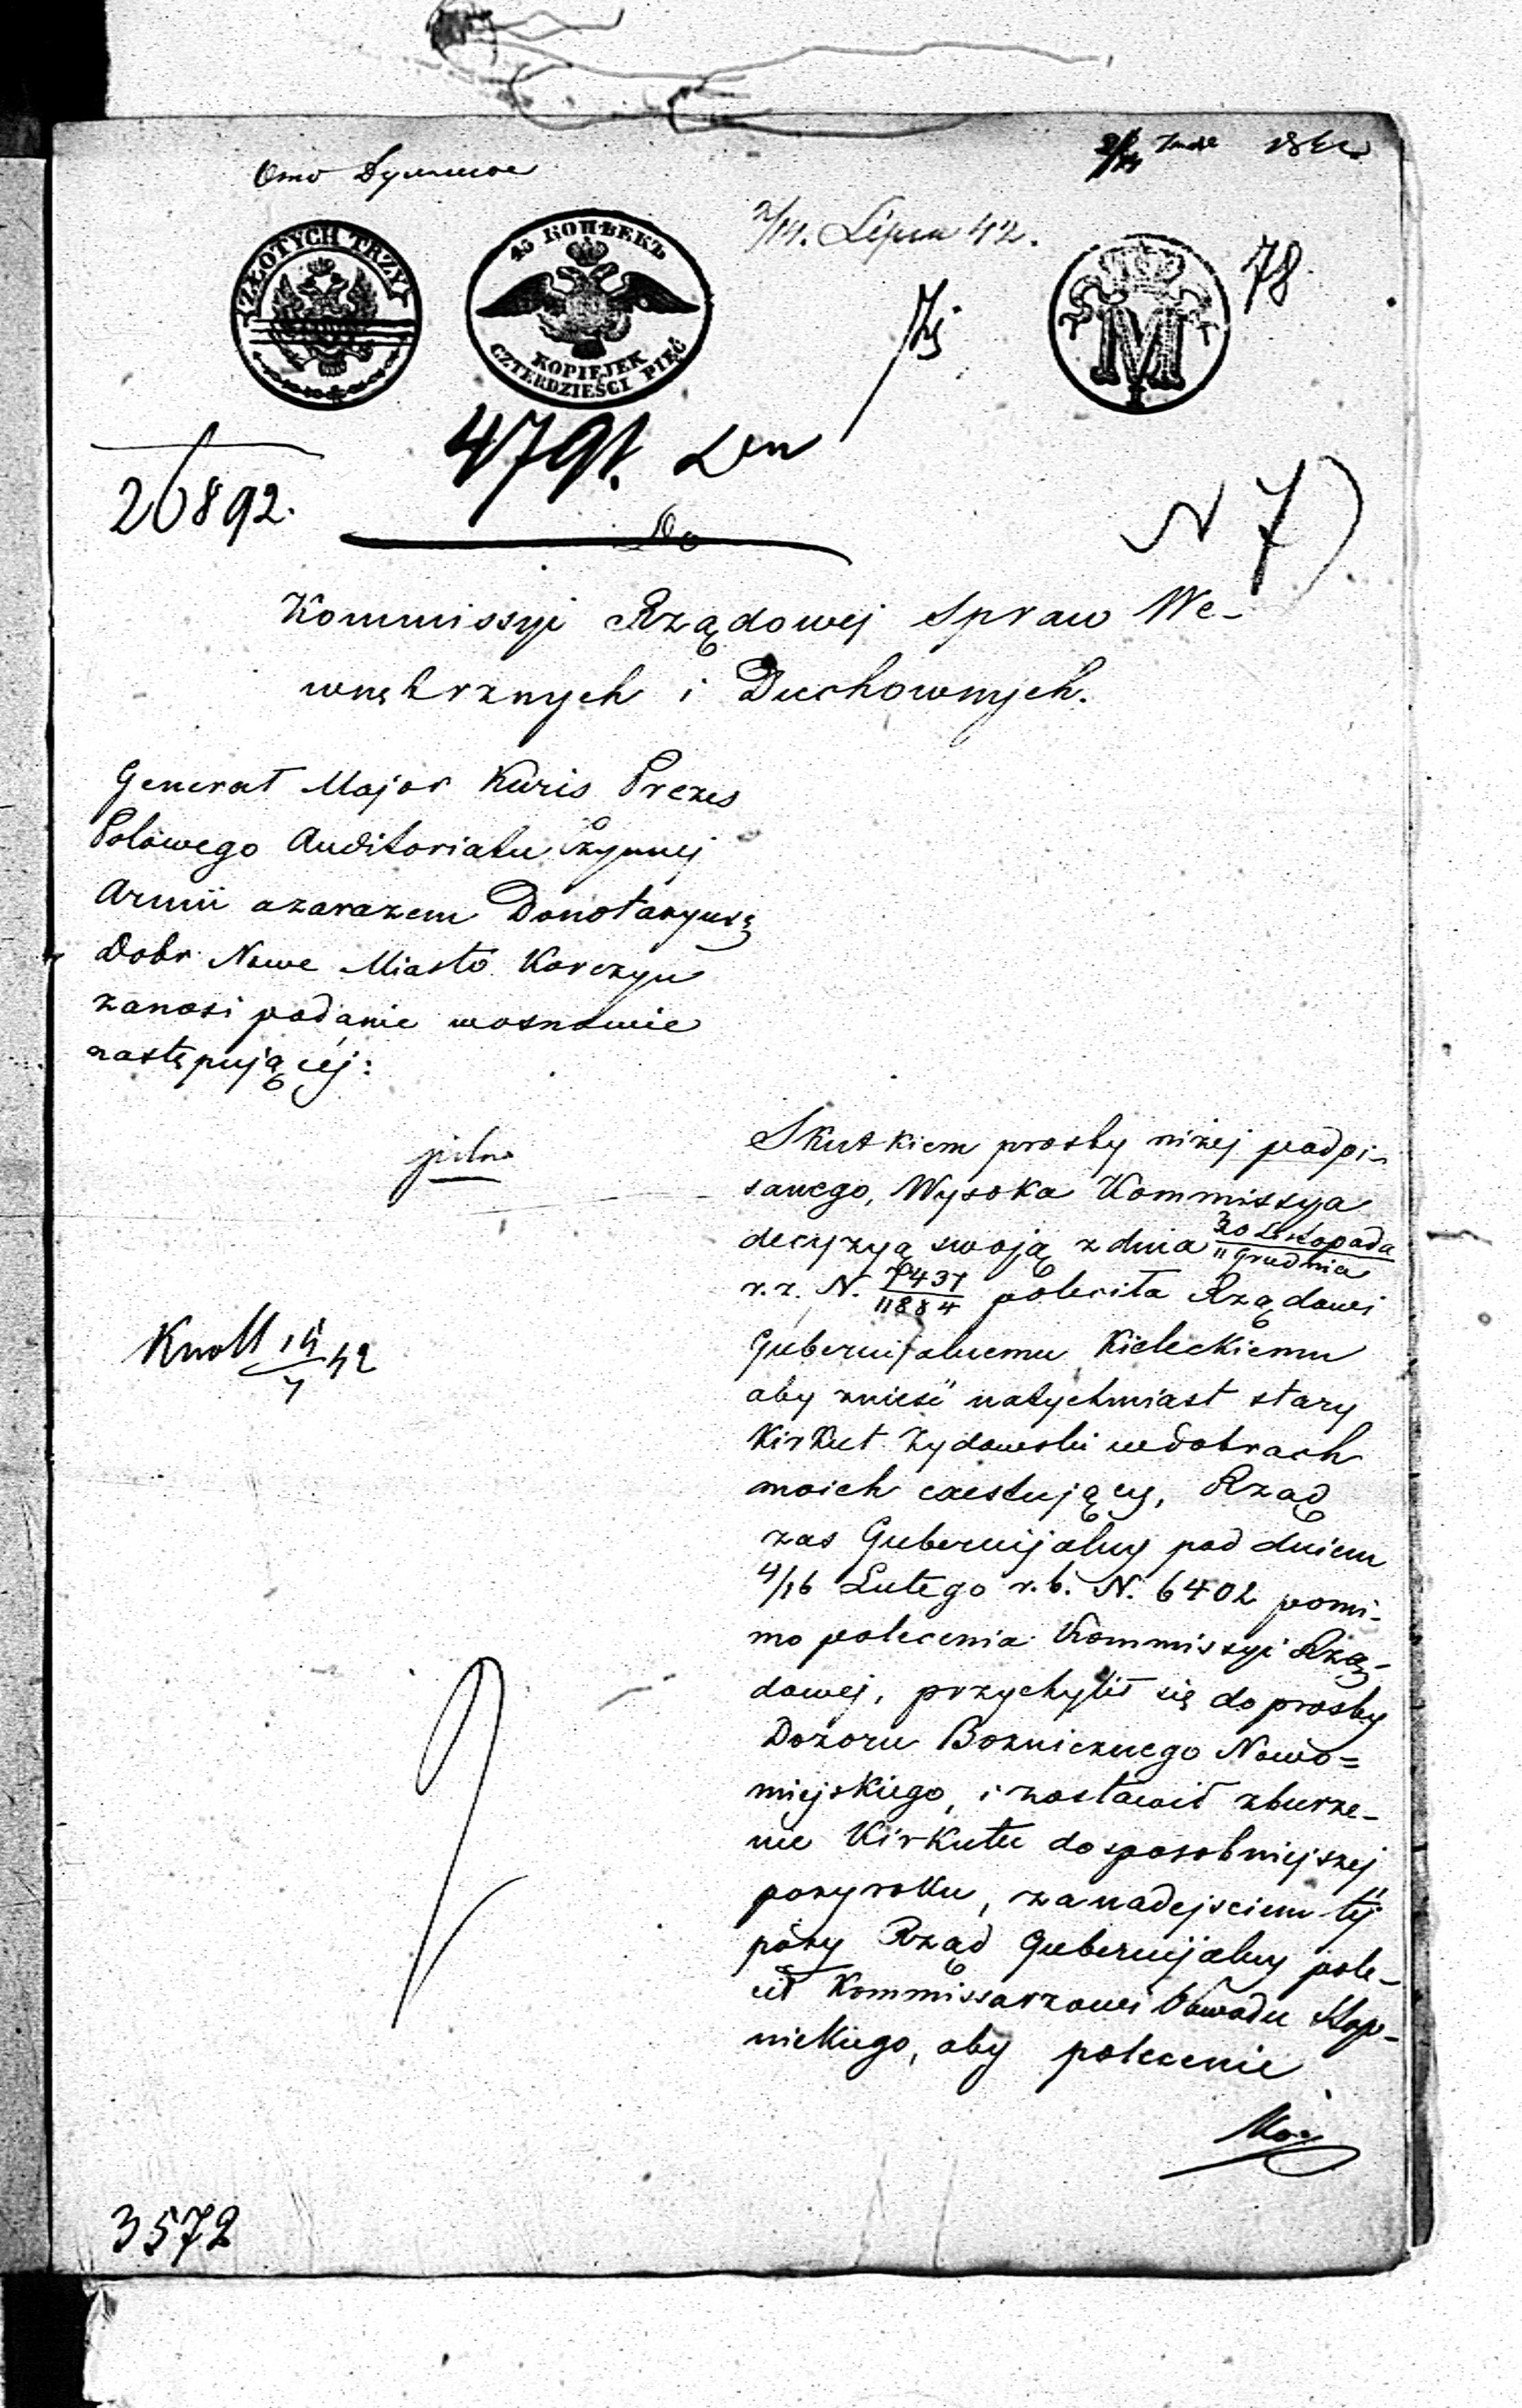 2/14. Lipca 42.
78
ZŁOTYCH TRZY
45 КОПѢЕКЪ
KOPIEJEK
CZTERDZIEŚCI PIĘĆ
M
4791.
26892.
N 7
Do
Kommissyi Rządowej Spraw We-
wnętrznych i Duchownych.
Generał Major Kuris Prezes
Polowego Auditoriatu Czynnej
Armii azarazem Donotaryusz
Dobr Nowe Miasto Korczyn
zanosi podanie wosnowie
następującéj:
pilno
Skutkiem prosby niżej podpi-
sanego, Wysoka Kommissya
decyzyą swoją z dnia 30 Listopada / 11 Grudnia
r. z. N. 7437/11884 poleciła Rządowi
Gubernijalnemu Kieleckiemu
aby znieść natychmiast stary
Kirkut Zydowski wdobrach
moich exestujący, Rząd
zas Gubernijalny pod dniem
4/16 Lutego r. b. N. 6402 pomi-
mo polecenia Kommissyi Rzą-
dowej, przychylił się do prosby
Dozoru Boznicznego Nowo=
miejskiego, i zostawił zburze-
nie Kirkutu do sposobniejszej
pory roku, za nadejsciem téj
póry Rząd Gubernijalny pole-
cił Kommissarzowi Obwodu Stop-
nickiego, aby polecenie
Knoll 14/7 42
3572